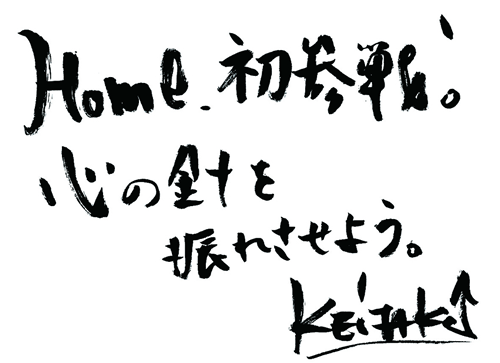 Home. 初参戦。
心の針を
振れさせよう。